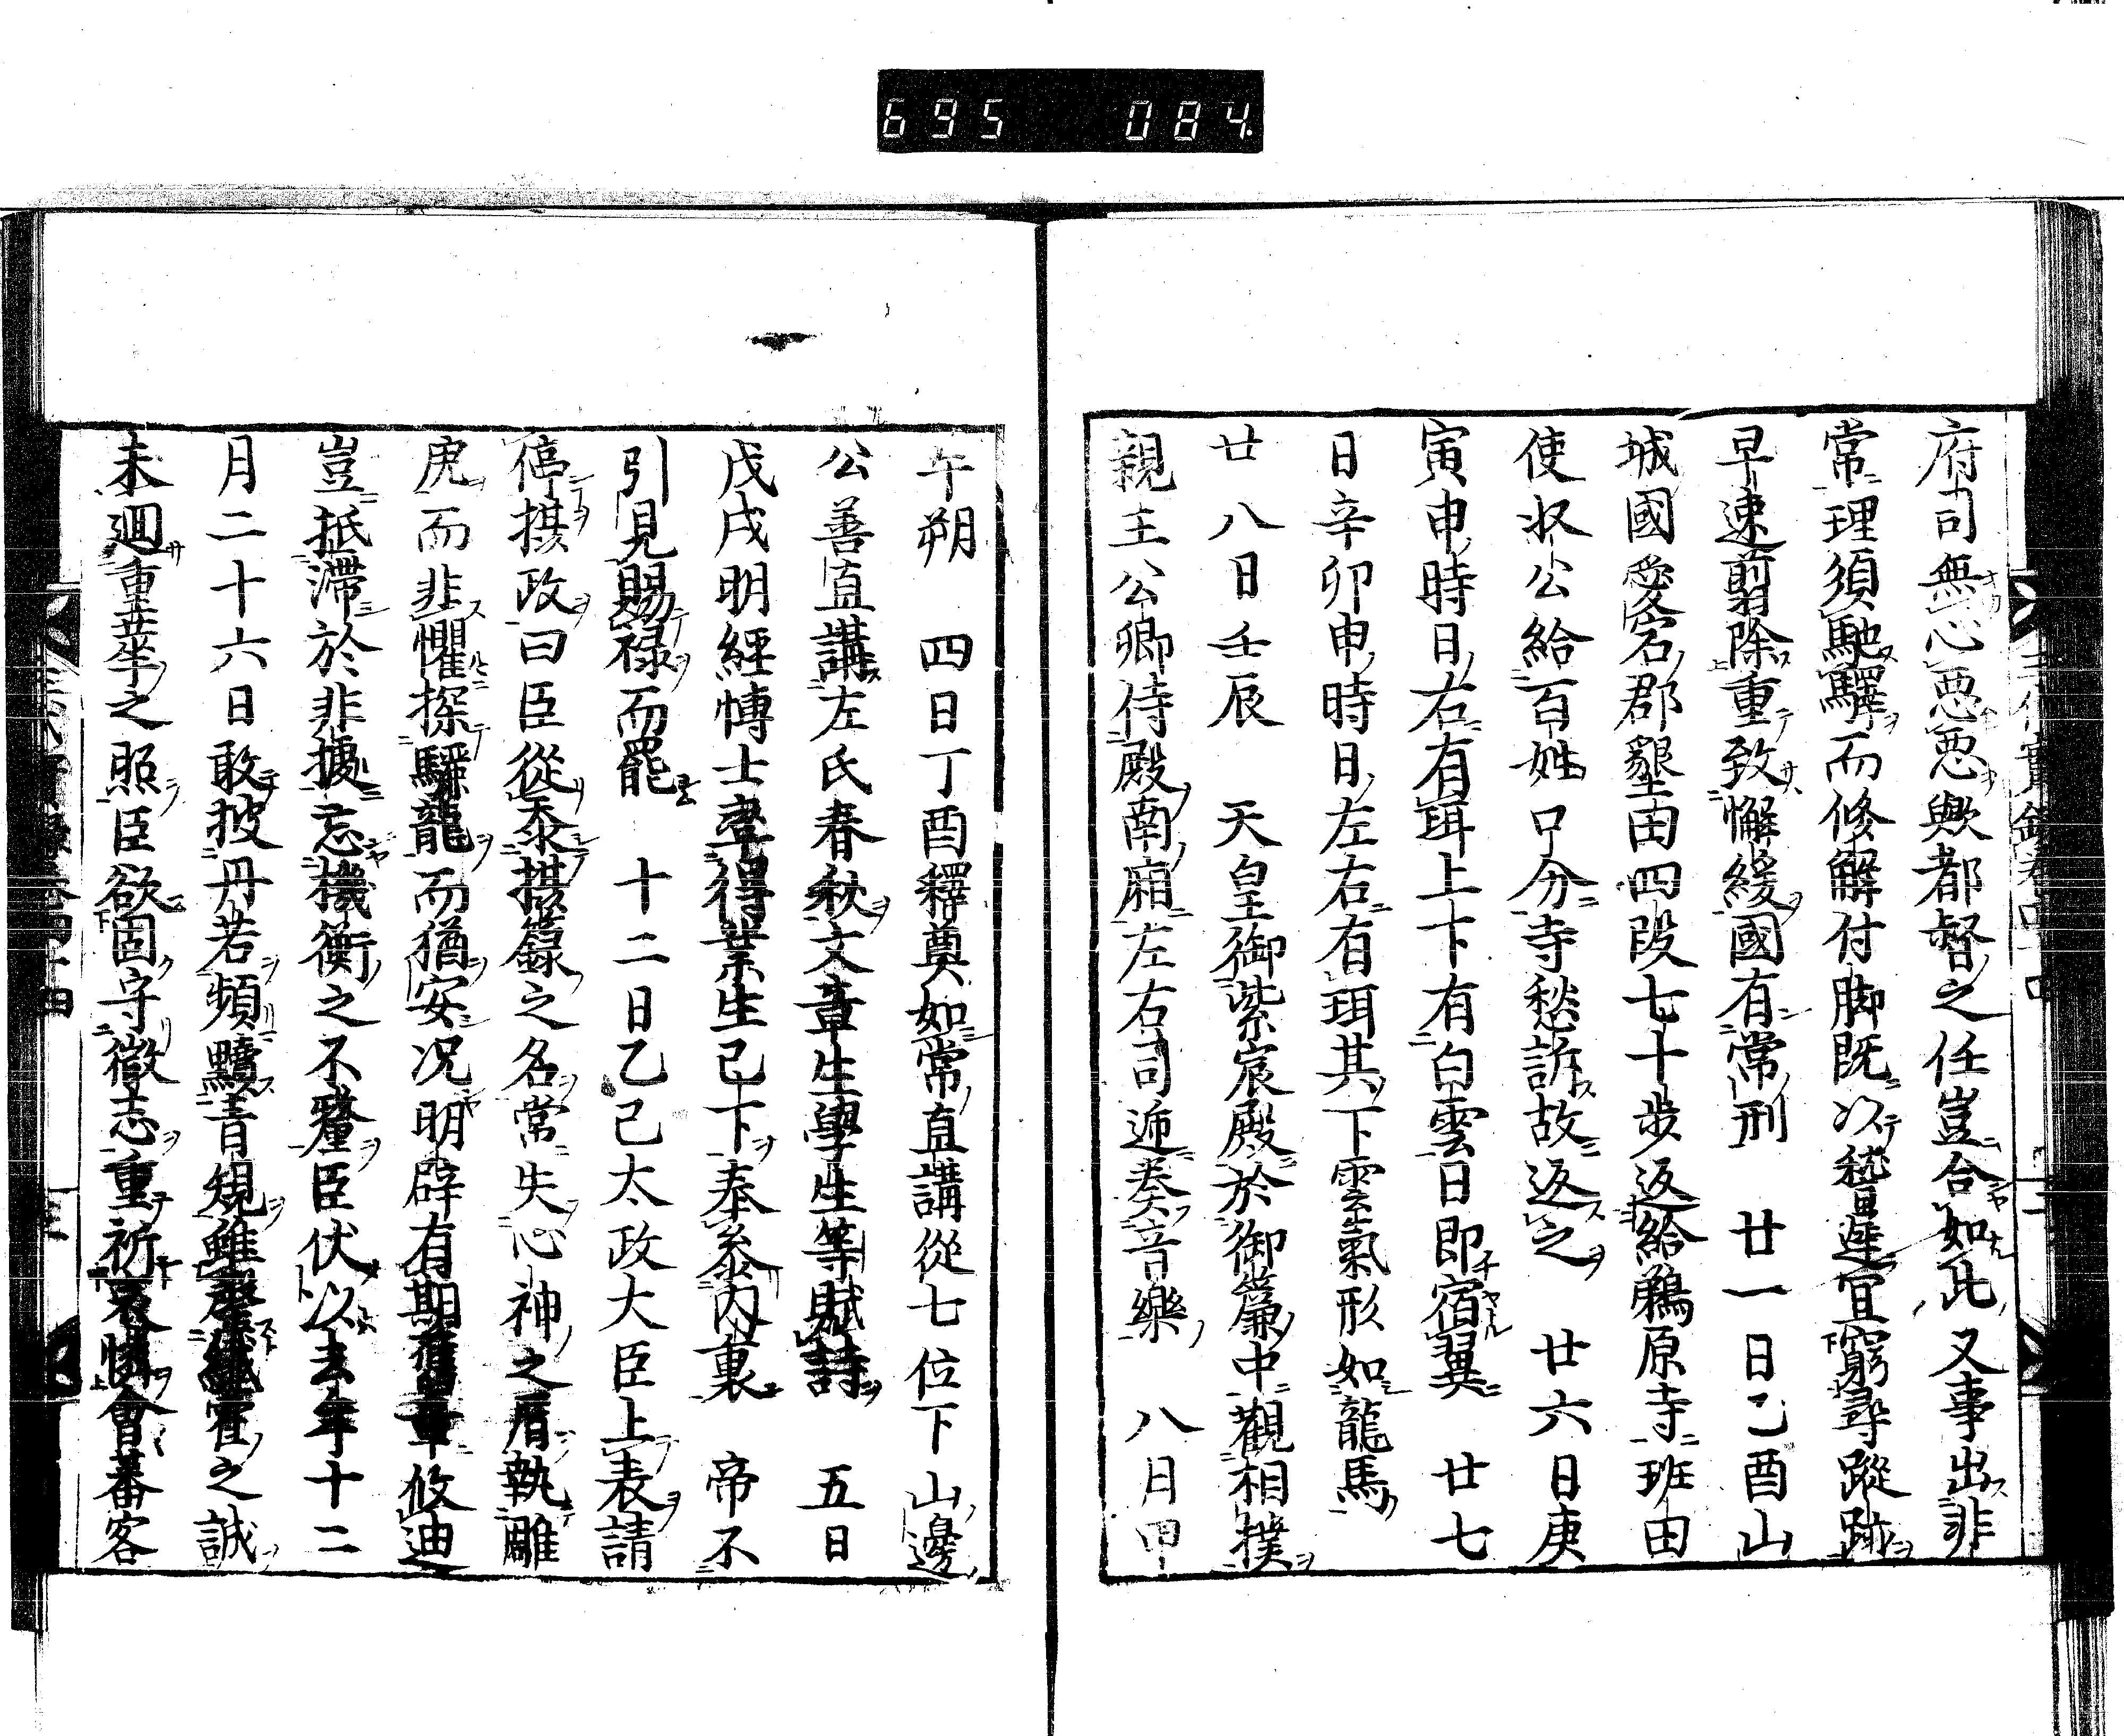 695 084
府司無心悪悪歟都督之任豈合如此又事出非
常理須馳驛而修解付脚既以稽遲宜窮尋蹤跡
早速剪除重致懈緩國有常刑 廿一日乙酉山
城國愛宕郡墾田四段七十歩返給鵜原寺班田
使収公給百姓口分寺愁訴故返之 廿六日庚
寅申時日右有珥上下有白雲日即宿翼 廿七
日辛卯申時日左右有珥其下雲氣形如龍馬
廿八日壬辰 天皇御紫宸殿於御簾中觀相撲
親王公卿侍殿南廂左右司逓奏音樂 八月甲
午朔 四日丁酉釋奠如常直講從七位下山邊
公善直講左氏春秋文章生學生等賦詩 五日
戊戌明經博士率得業生已下奉參内裏 帝不
引見賜禄而罷 十二日乙巳太政大臣上表請
停摂政曰臣從忝摂籙之名常失心神之厝執雕
虎而非懼探驪龍而猶安况明辟有期舊章攸迪
豈抵滯於非據忘機衡之不釐臣伏以去年十二
月二十六日敢披丹若頻黷青規雖磬纖霍之誠
未迴重華之照臣欲固守徽志重祈哀憐會蕃客